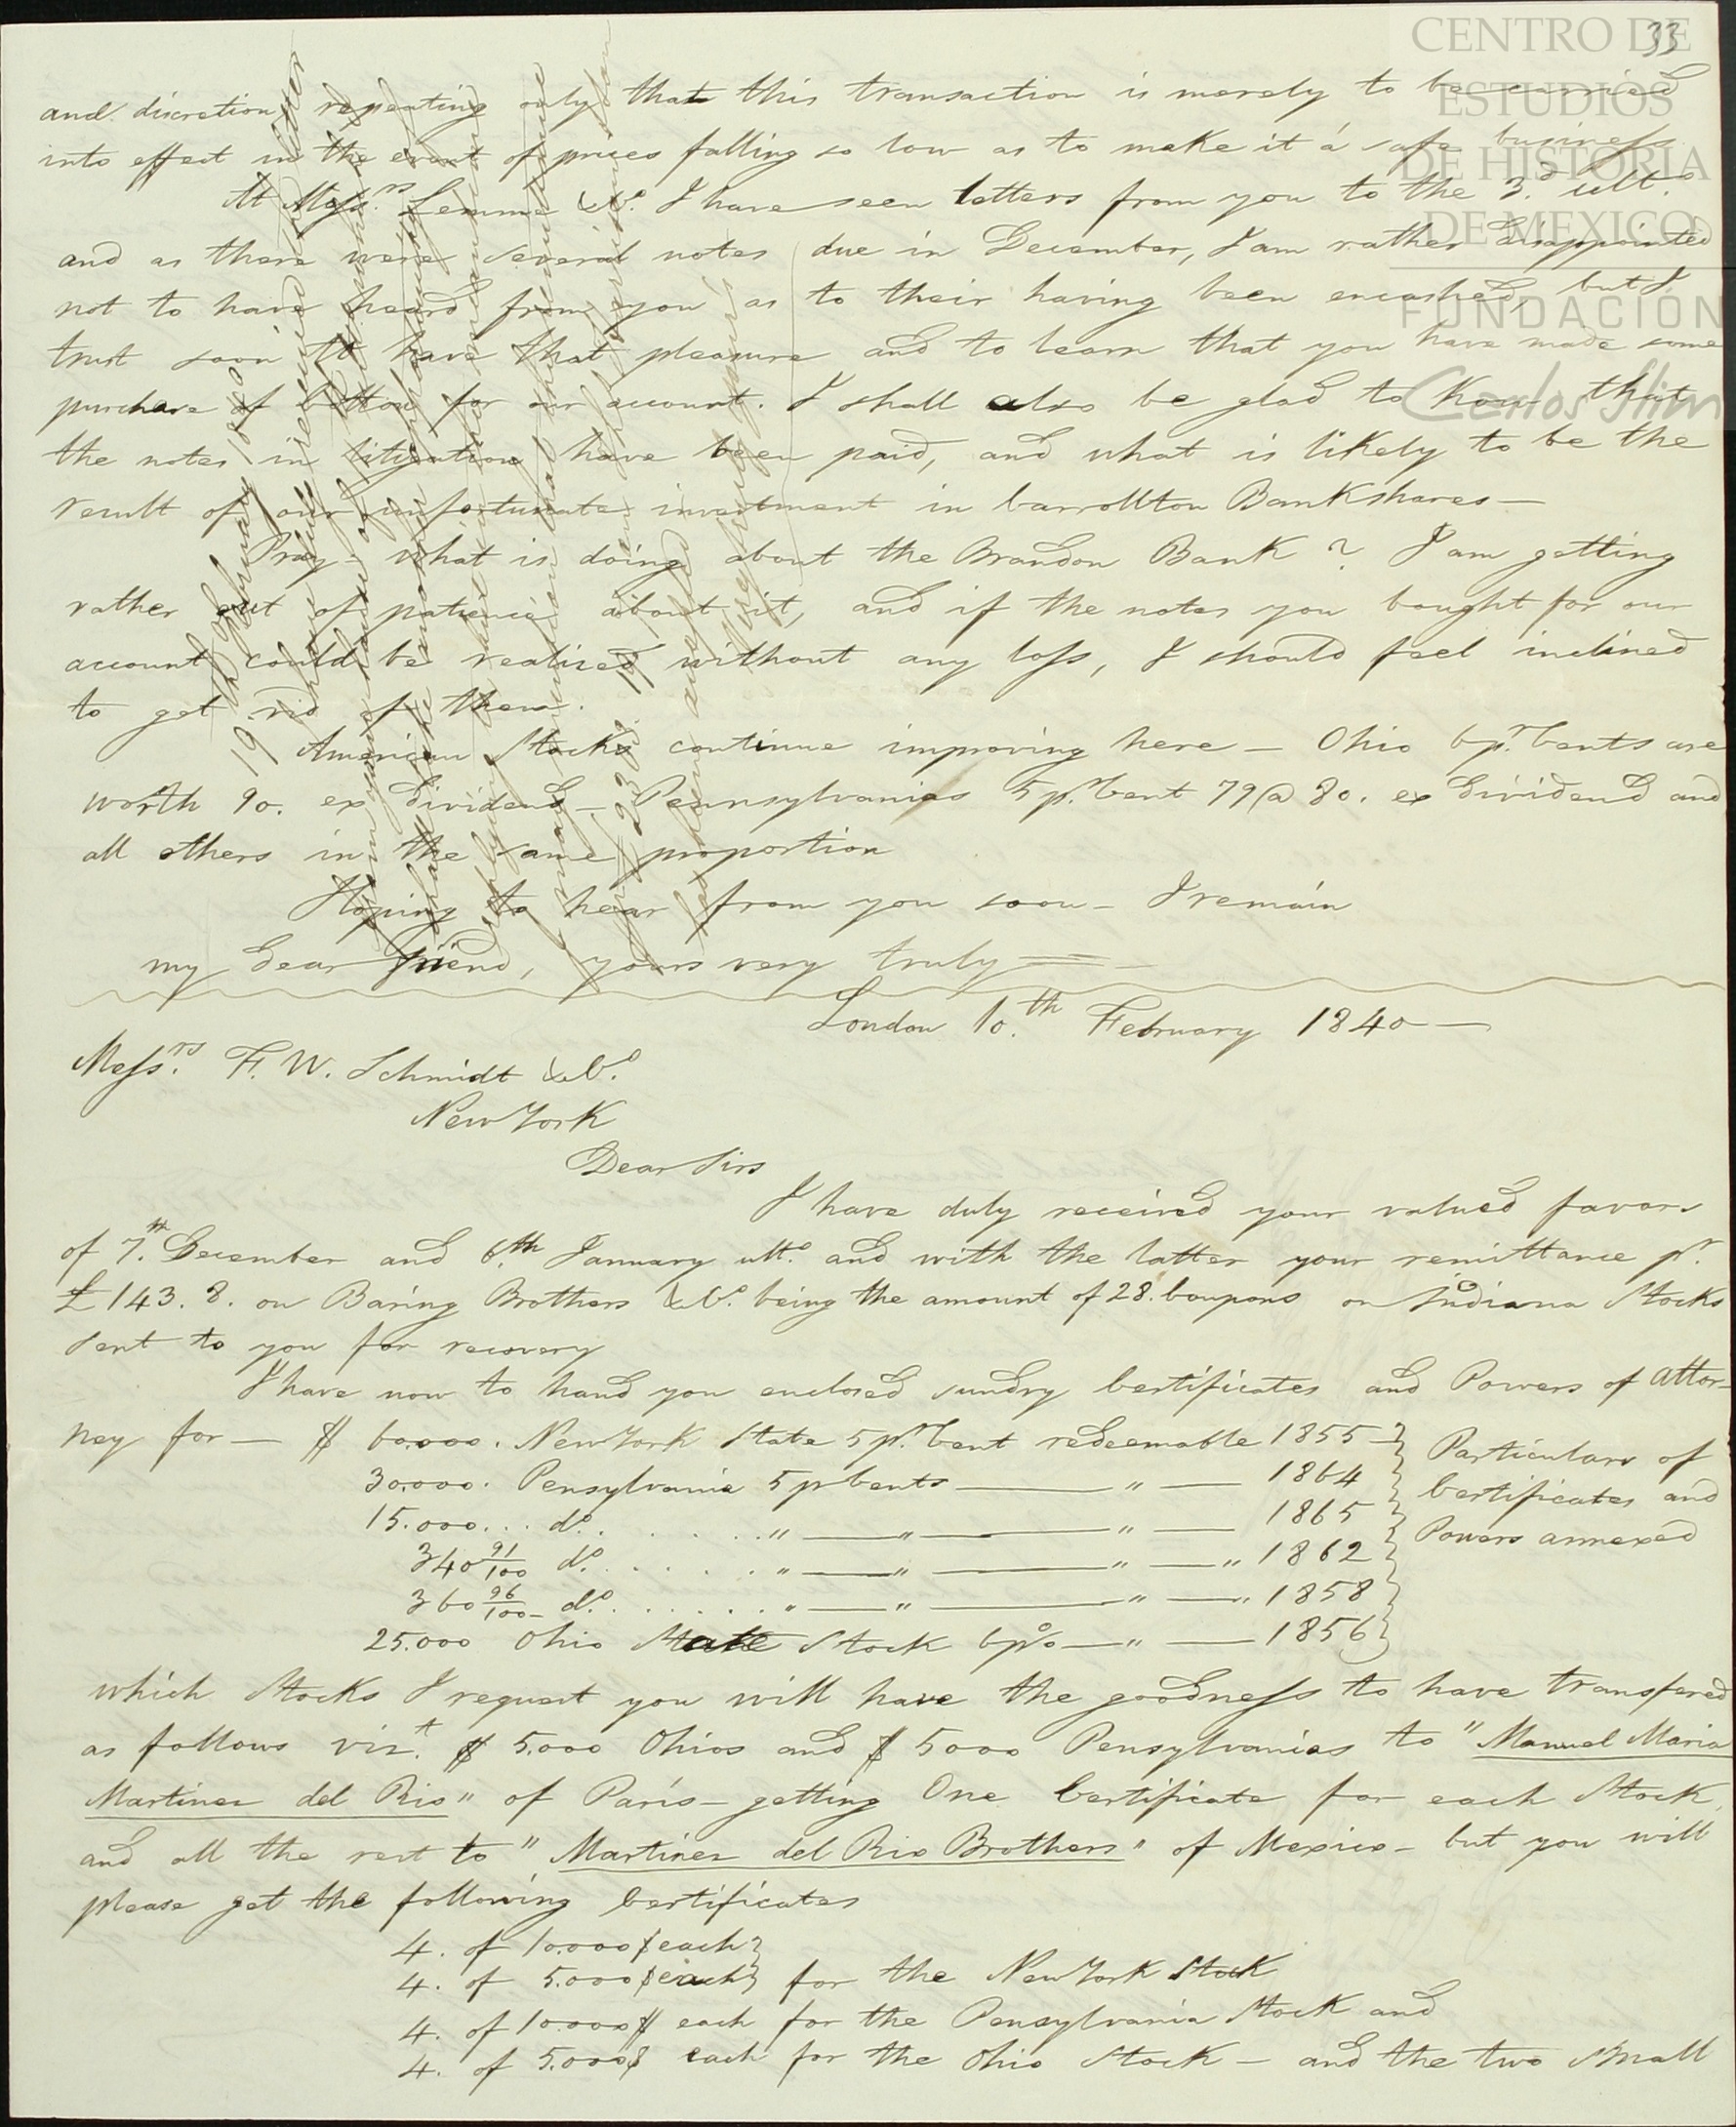 33
CENTRO DE
ESTUDIOS
DE HISTORIA
DE MEXICO
FUNDACIÓN
Carlos Slim
and discretion, repeating only that this transaction is merely to be carried
into effect in the event of prices falling so low as to make it á safe business
At Mess.rs Lemme &C.o I have seen letters from you to the 3.d ult.o
and as there were several notes due in December, I am rather disappointed
not to have heard from you as to their having been encashed, but I
trust soon to have that pleasure and to learn that you have made some
purchase of Cotton for our account. I shall also be glad to know that
the notes in litigation have been paid, and what is likely to be the
result of our unfortunate investment in Carrollton Bank shares —
Pray what is doing about the Brandon Bank? I am getting
rather out of patience about it, and if the notes you bought for our
account could be realized without any loss, I should feel inclined
to get rid of them.
American Stocks continue improving here — Ohio 6 p.r Cents are
worth 90. ex dividend — Pennsylvanias 5 p.r Cent 79 @ 80. ex dividend and
all others in the same proportion
Hoping to hear from you soon — I remain
my dear friend, yours very truly
19 February 1840
London 10.th February 1840 —
Mess.rs F. W. Schmidt &C.o
New York
Dear Sirs
I have duly received your valued favors
of 7.th December and 6.th January ult.o and with the latter your remittance p.r
£ 143. 8. on Baring Brothers &C.o being the amount of 28. Coupons on Indiana Stocks
sent to you for recovery
I have now to hand you enclosed sundry Certificates and Powers of Attor-
ney for — $ 60.000. New York State 5 p.r Cent redeemable 1855 } Particulars of
30.000. Pensylvania 5 p Cents — " — 1864 } Certificates and
15.000... d.o . . . . " — " — " — 1865 } Powers annexed
340 91/100 d.o . . . . . " — " — " — " 1862 }
360 96/100 d.o . . . . . " — " — " — " 1858 }
25.000 Ohio State Stock 6 p% — " — 1856 }
which Stocks I request you will have the goodness to have transfered
as follows viz.t $ 5.000 Ohios and $ 5000 Pensylvanias to "Manuel Maria
Martinez del Rio" of París — getting One Certificate for each Stock,
and all the rest to "Martinez del Rio Brothers" of Mexico — but you will
please get the following Certificates
4. of 10.000 $ each }
4. of 5.000 $ each } for the New York Stock
4. of 10.000 $ each for the Pensylvania Stock and
4. of 5.000 $ each for the Ohio Stock — and the two small